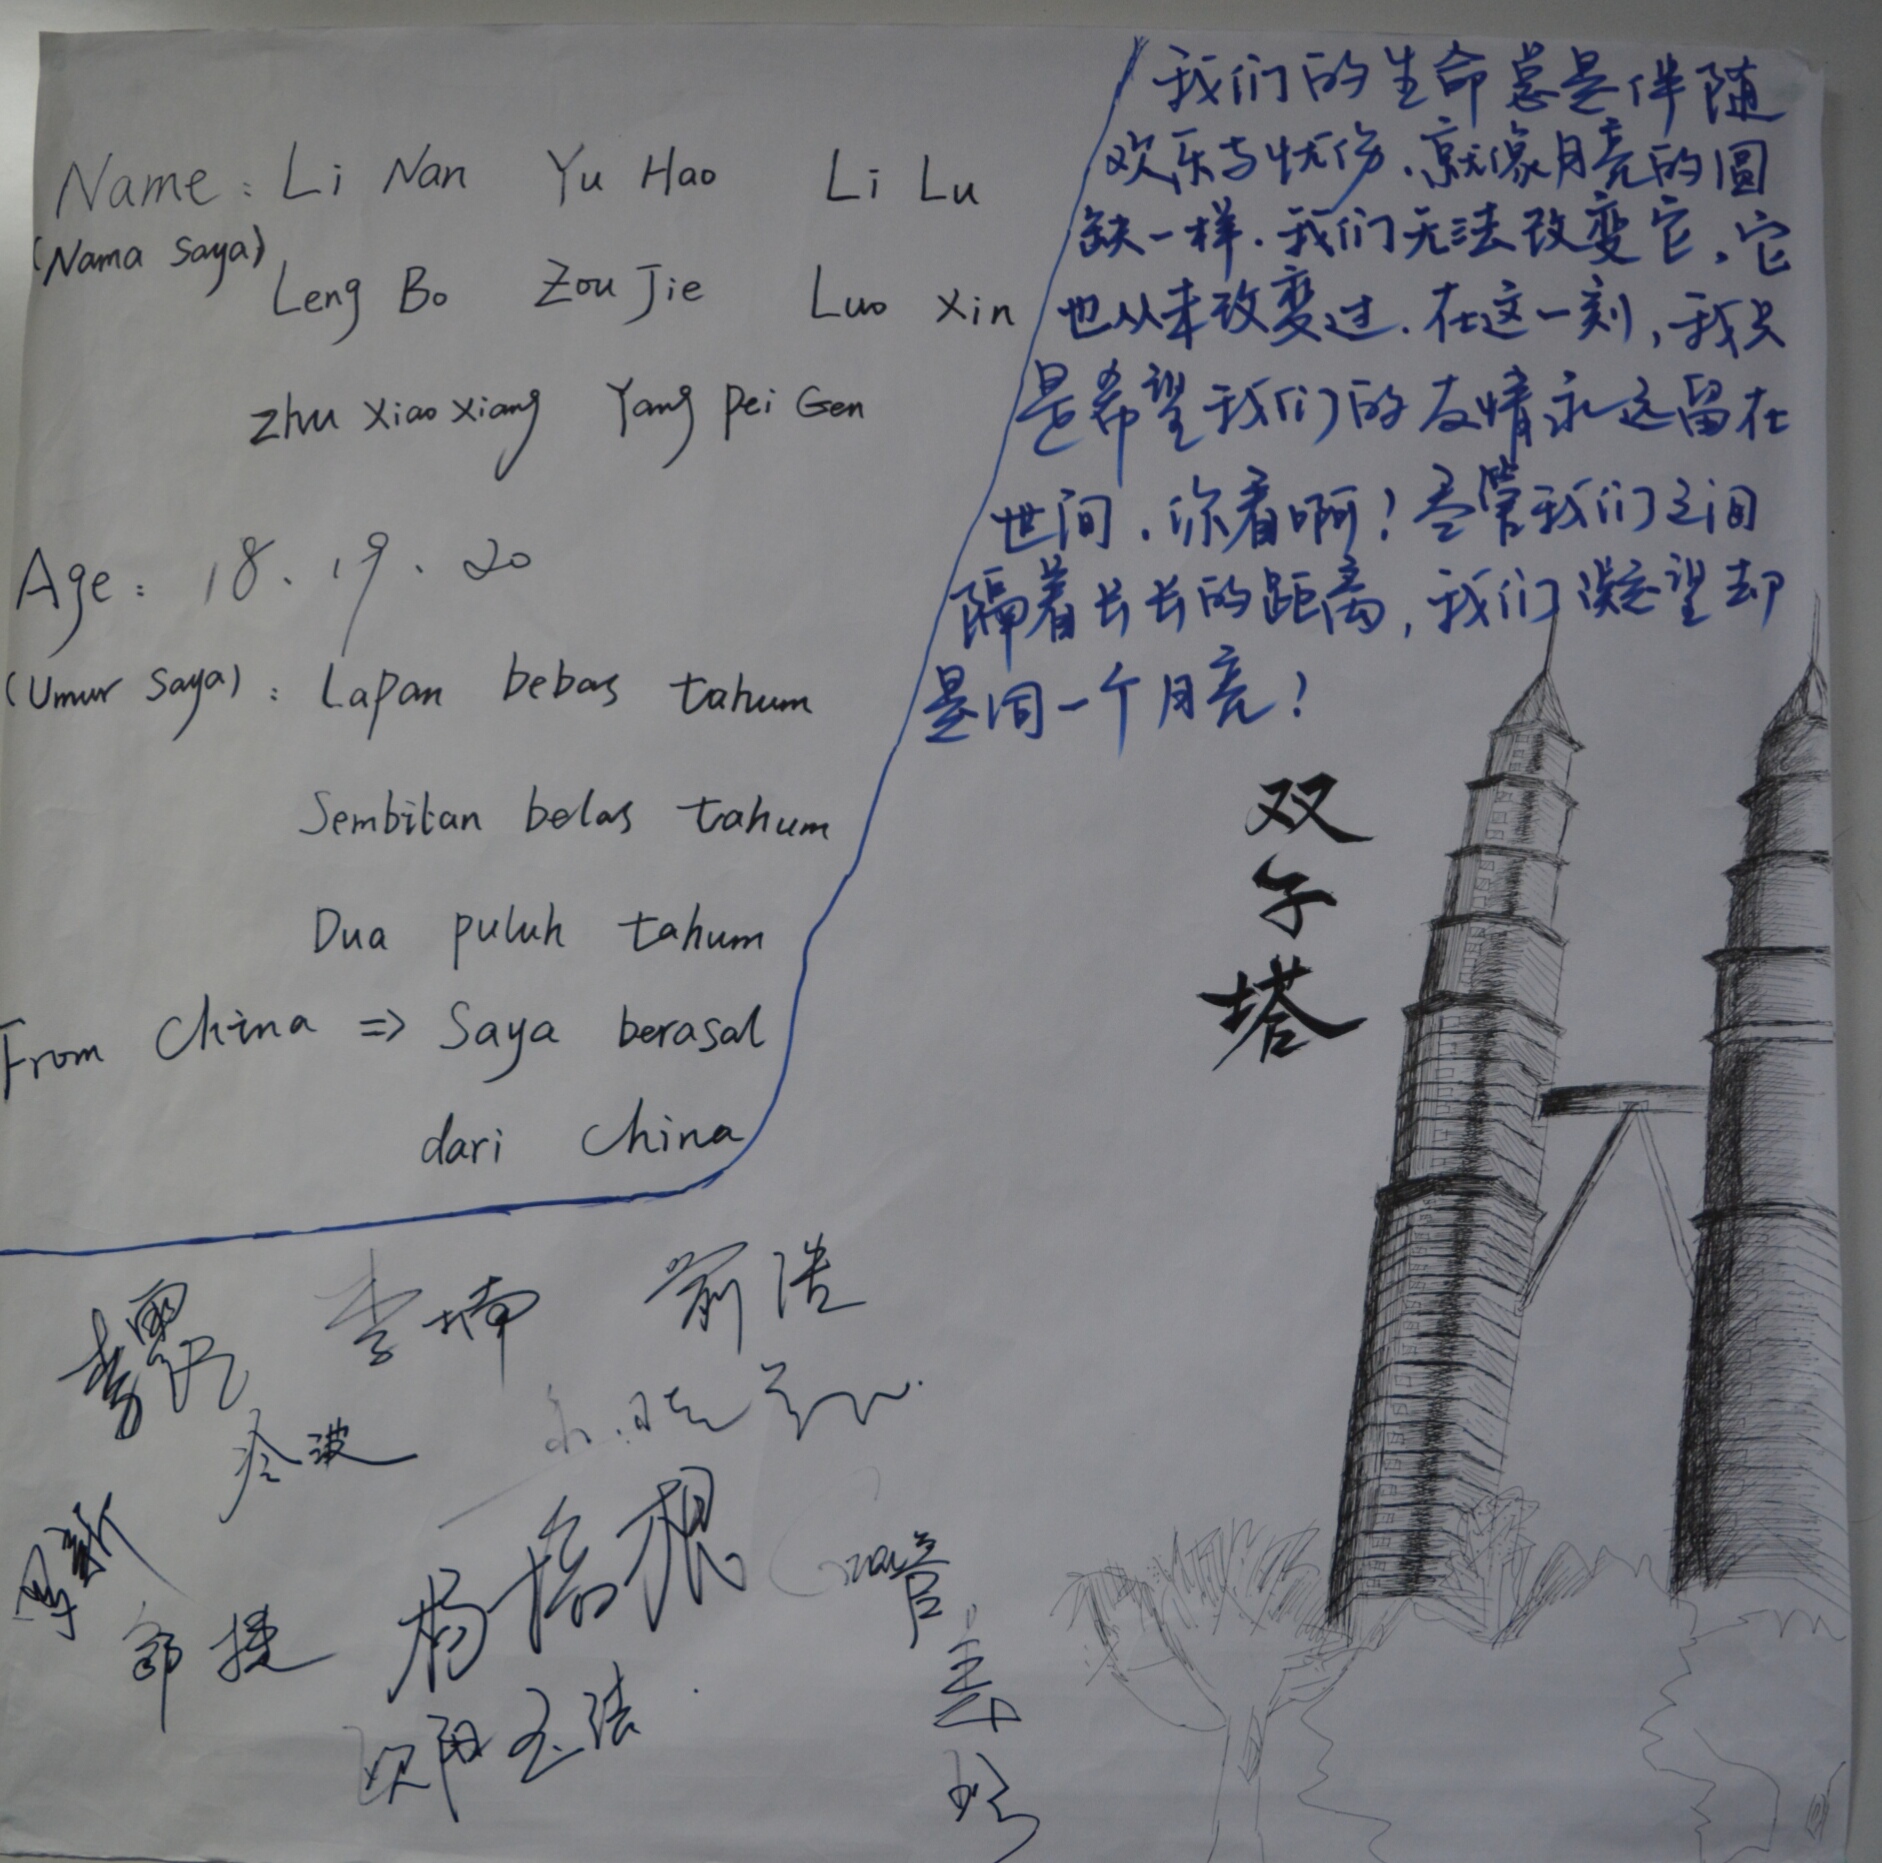 Name: Li Nan Yu Hao Li Lu
(Nama Saya)
Leng Bo Zou Jie Luo Xin
Zhu Xiao Xiang Yang Pei Gen
Age: 18、19、20
(Umur Saya): Lapan bebas tahum
Sembilan belas tahum
Dua puluh tahum
From China => Saya berasal
dari China
我们的生命总是伴随
欢乐与忧伤.就像月亮的圆
缺一样.我们无法改变它,它
也从未改变过.在这一刻,我只
是希望我们的友情永远留在
世间.你看啊!尽管我们之间
隔着长长的距离,我们凝望却
是同一个月亮!
双
子
塔
李楠
冷波
杨培根
邹捷
欧阳